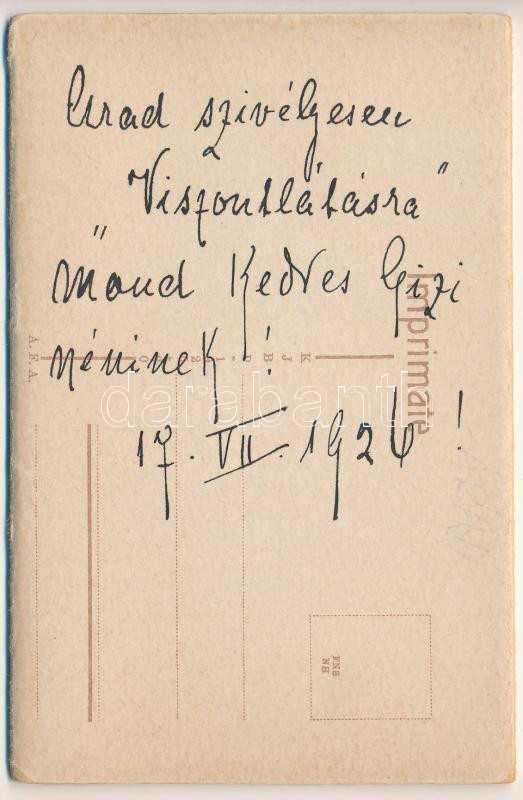 Arad szivélyesen
Viszontlátásra"
"Mond Kedves Gizi
néninek!
17. VII. 1926!
Imprimate
K J B
A. F. A.
FNS
NH
ARAD
darabanth